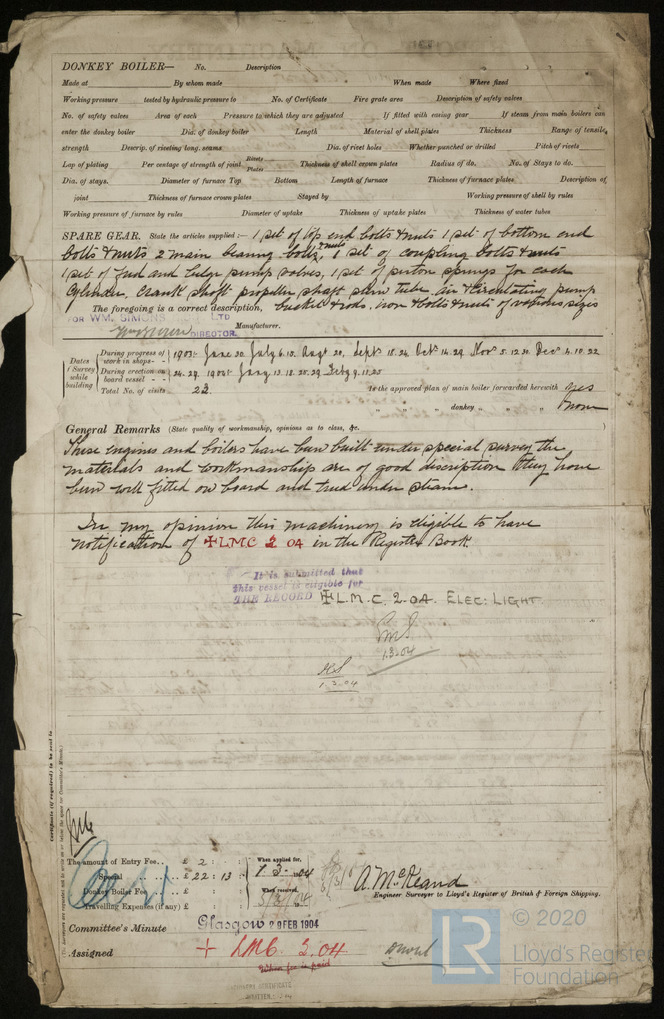 DONKEY BOILER— No. Description
Made at By whom made When made Where fixed
Working pressure tested by hydraulic pressure to No. of Certificate Fire grate area Description of safety valves
No. of safety valves Area of each Pressure to which they are adjusted If fitted with easing gear If steam from main boilers can
enter the donkey boiler Dia. of donkey boiler Length Material of shell plates Thickness Range of tensile
strength Descrip. of riveting long. seams Dia. of rivet holes Whether punched or drilled Pitch of rivets
Lap of plating Per centage of strength of joint Rivets Plates Thickness of shell crown plates Radius of do. No. of Stays to do.
Dia. of stays. Diameter of furnace Top Bottom Length of furnace Thickness of furnace plates Description of
joint Thickness of furnace crown plates Stayed by Working pressure of shell by rules
Working pressure of furnace by rules Diameter of uptake Thickness of uptake plates Thickness of water tubes
SPARE GEAR. State the articles supplied:— 1 set of top end bolts & nuts 1 set of bottom end
bolts & nuts 2 main bearing bolts & nuts, 1 set of coupling bolts & nuts
1 set of feed and bilge pump valves, 1 set of piston springs for each
cylinder, crank shaft propeller shaft stern tube air & circulating pump
The foregoing is a correct description, bucket & rods. iron & bolts & nuts of various sizes
FOR WM. SIMONS LTD
DIRECTOR. Manufacturer.
Dates of Survey while building
During progress of work in shops - - 1903: June 30 July 6.13 Augt 20, Sept 18.24 Oct 14.29 Nov 5.12.21 Dec 4.10.22
During erection on board vessel - - 24.29. 1904: Jany 13.18.25.29 Feby 9.11.25
Total No. of visits 23 Is the approved plan of main boiler forwarded herewith yes
" " " donkey " " " none
General Remarks (State quality of workmanship, opinions as to class, &c.
These engines and boilers have been built under special survey the
materials and workmanship are of good discription they have
been well fitted on board and tried under steam.
In my opinion this machinery is eligible to have
notification of ✠ LMC 2 04 in the Register Book.
It is submitted that
this vessel is eligible for
THE RECORD ✠ L.M.C. 2.04. ELEC: LIGHT
1.3.04
1.3.04
Certificate (if required) to be sent to
The amount of Entry Fee.. £ 2 : : When applied for,
Special £ 22 : 13 : 1.3.04
Donkey Boiler Fee £ : : When received,
Travelling Expenses (if any) £ : : 5/3/04
A. McKeand
Engineer Surveyor to Lloyd's Register of British & Foreign Shipping.
Committee's Minute Glasgow 29 FEB 1904
Assigned + LMC. 2.04
When fee is paid
© 2020
LR Lloyd's Register
Foundation